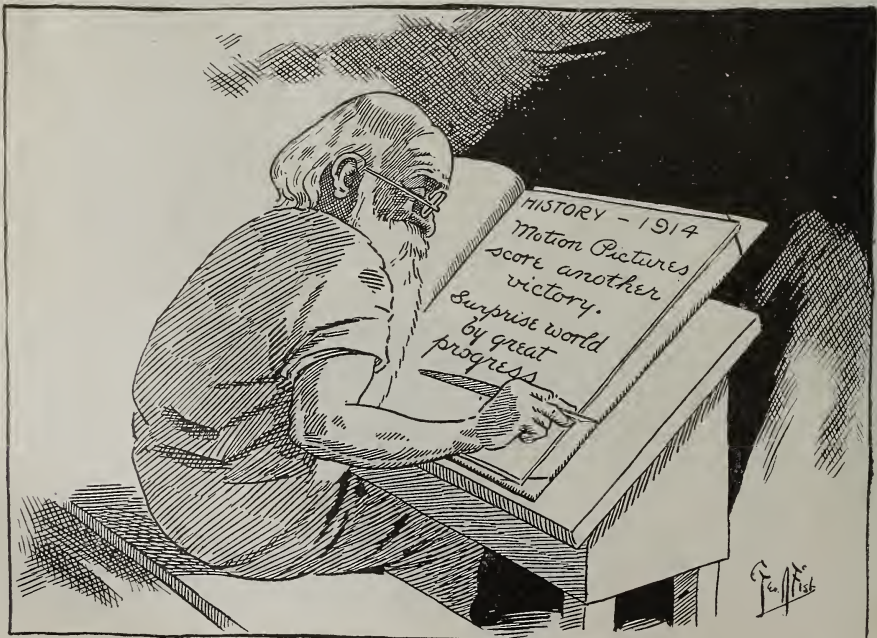 HISTORY - 1914
Motion Pictures
score another
victory.
Surprise world
by great
progress
Geo. A Fish